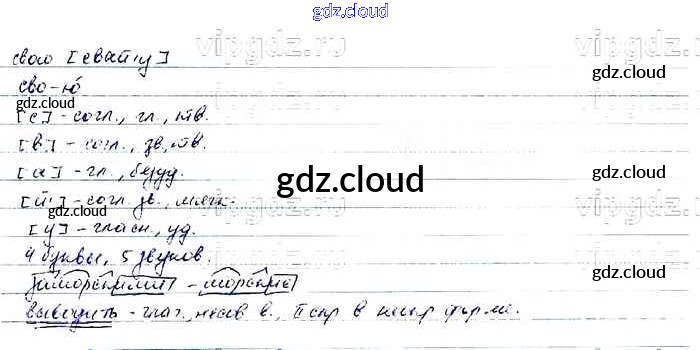 gdz.cloud
свою [свай'у]
gdz.cloud
сво-ю́
gdz.cloud
[с] - согл., гл., тв.
[в] - согл., зв., тв.
gdz.cloud
[а] - гл., безуд.
gdz.cloud
[й'] - согл. зв., мягк.
gdz.cloud
[у] - гласн., уд.
4 буквы, 5 звуков.
gdz.cloud
заморскими - морские
выводить - глаг., несов в., I спр в неопр форме.
gdz.cloud